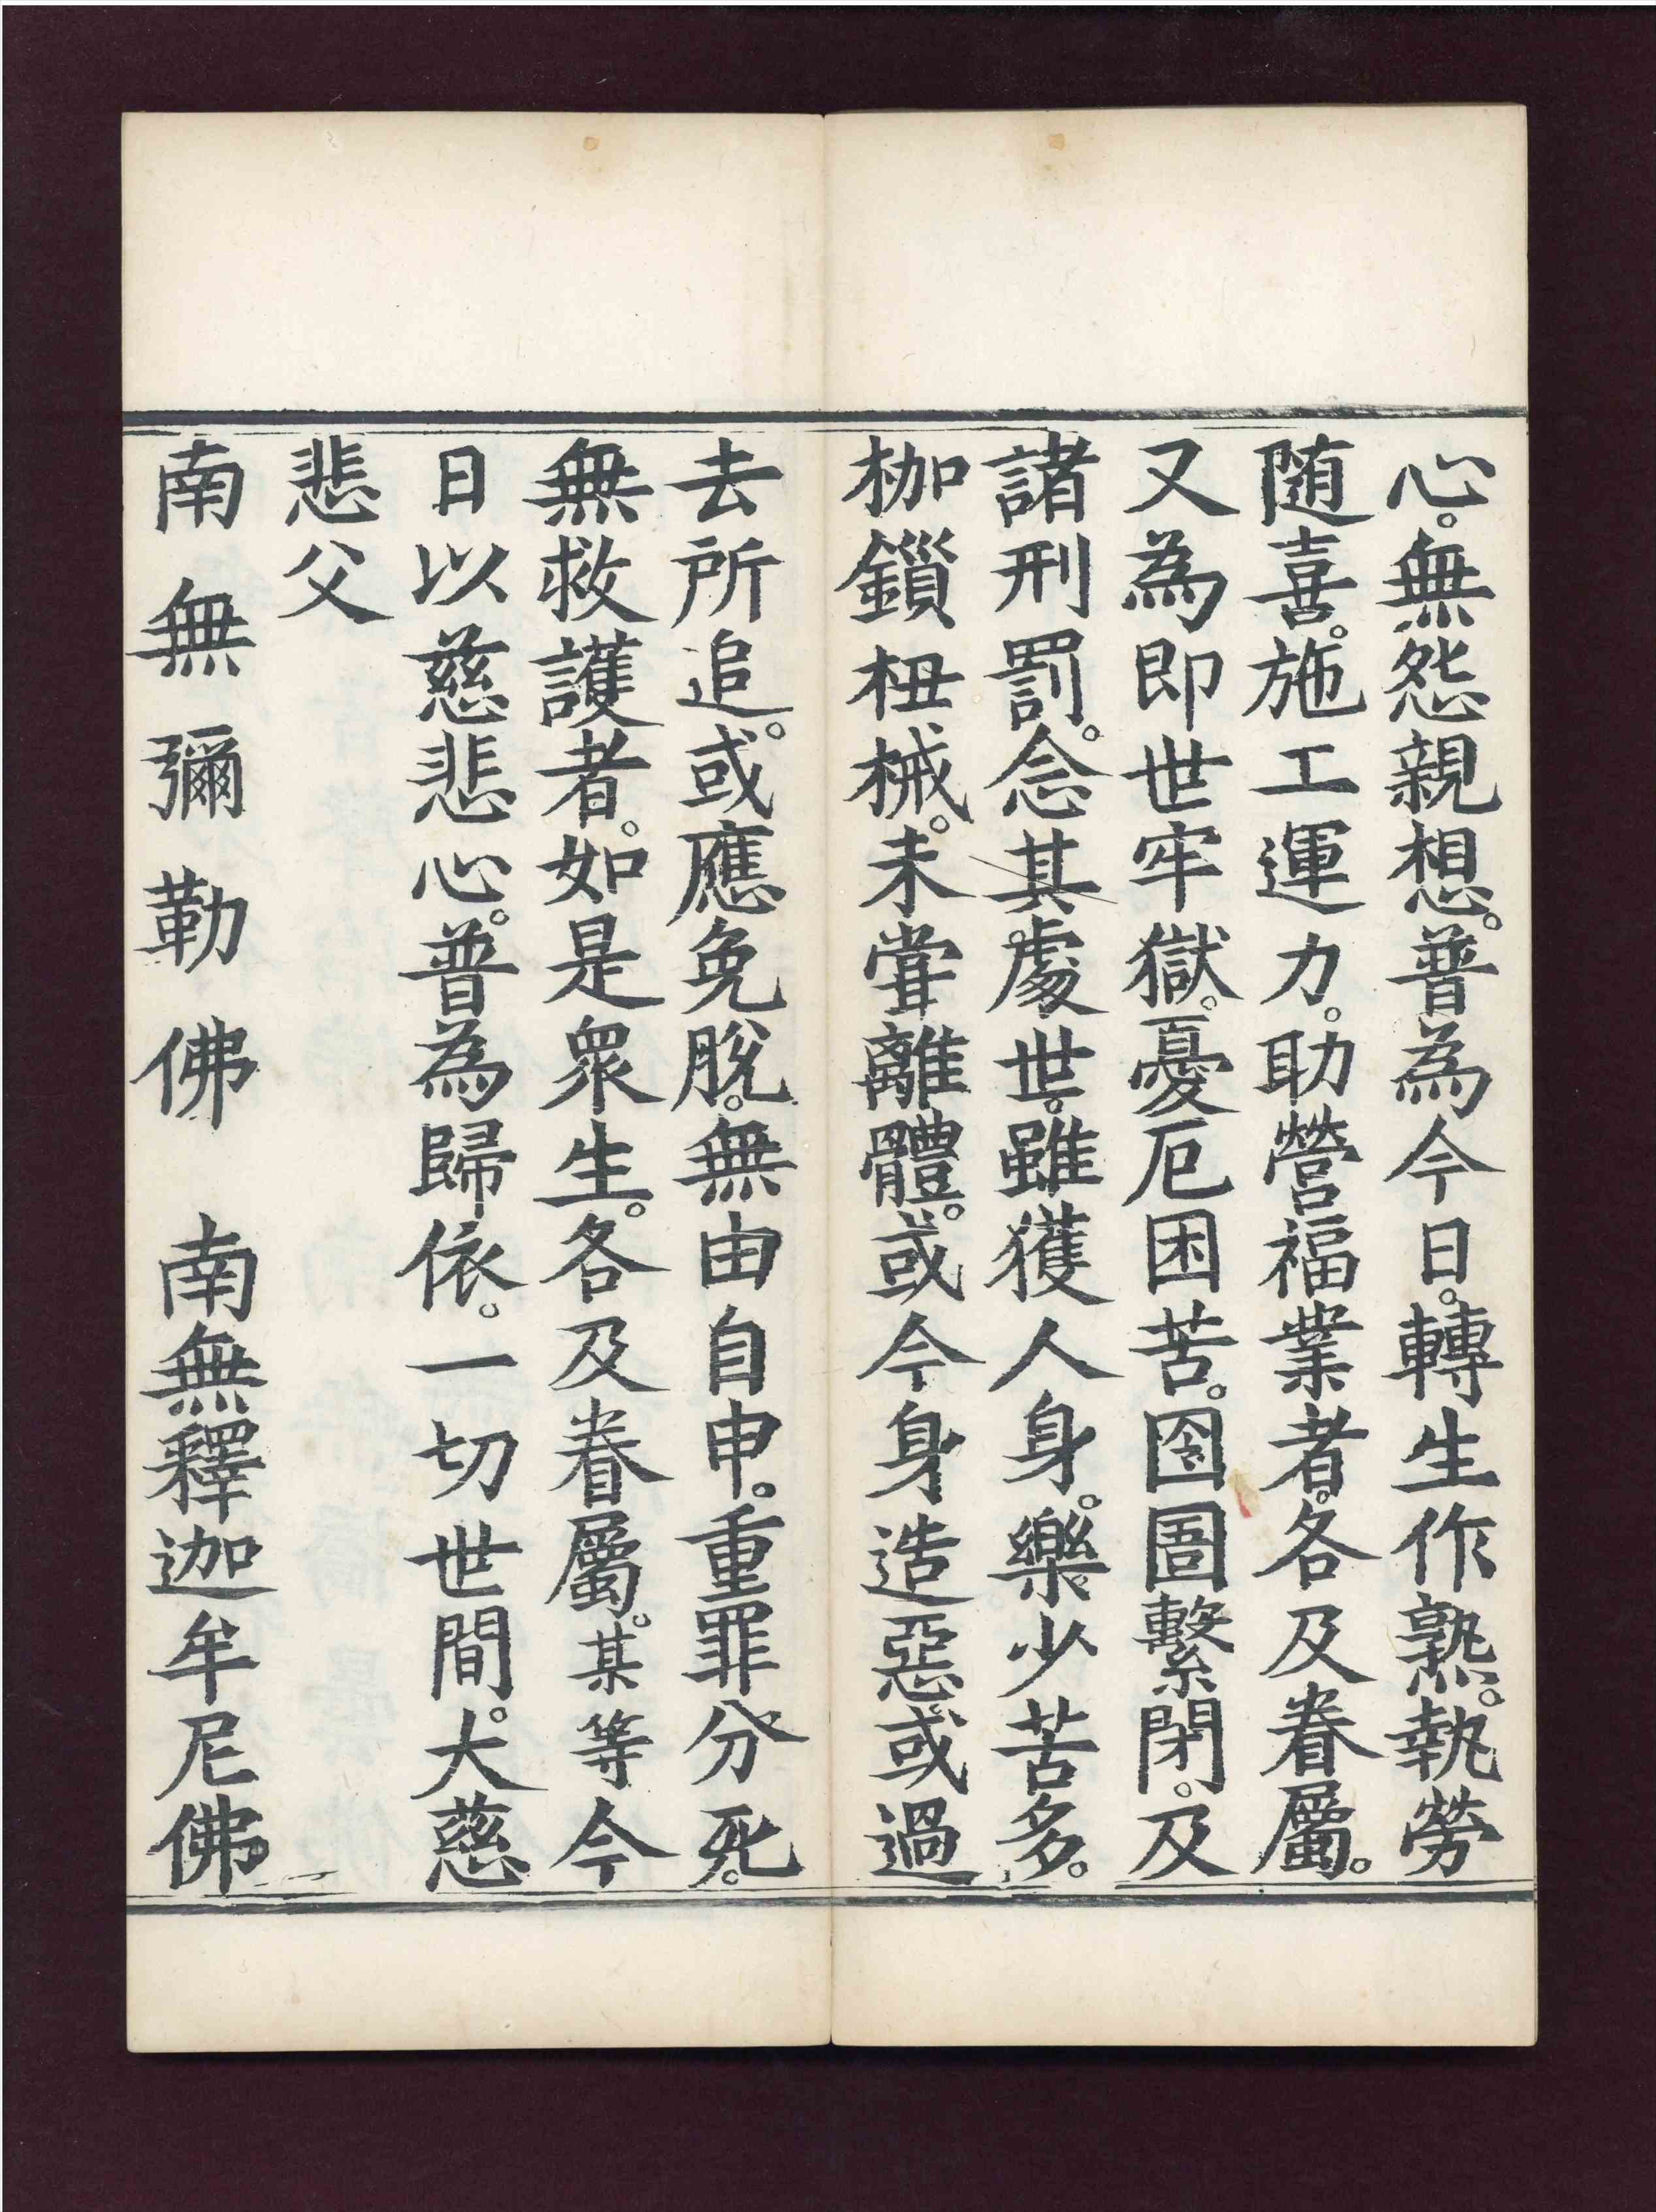 心。無怨親想。普為今日。轉生作熟。執勞
随喜。施工運力。助營福業者。各及眷屬。
又為即世牢獄。憂厄困苦。囹圄繫閉。及
諸刑罰。念其處世。雖獲人身。樂少苦多。
枷鎻杻械。未甞離體。或今身造惡或過
去所追。或應免脫。無由自申。重罪分死。
無救護者。如是衆生。各及眷屬。某等今
日以慈悲心。普為歸依。一切世間。大慈
悲父
南無彌勒佛　南無釋迦牟尼佛